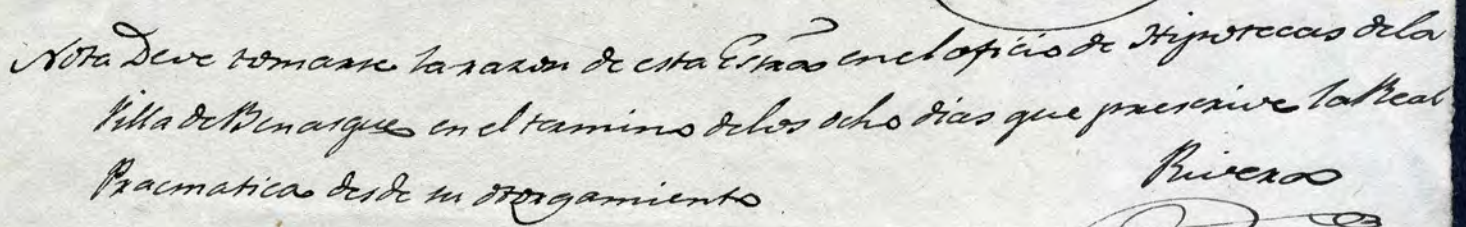 Nota Deve tomarse la razon de esta Essra en el oficio de Hipotecas de la
Villa de Benasque en el termino de los ocho dias que prescrive la Real
Pracmatica desde su otorgamiento
Rivera